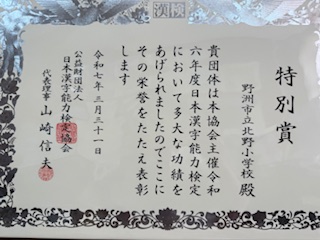 漢検
特別賞
野洲市立北野小学校 殿
貴団体は本協会主催令和
六年度日本漢字能力検定
において多大な功績を
あげられましたのでここに
その栄誉をたたえ表彰
します
令和七年三月三十一日
公益財団法人
日本漢字能力検定協会
代表理事 山崎信夫